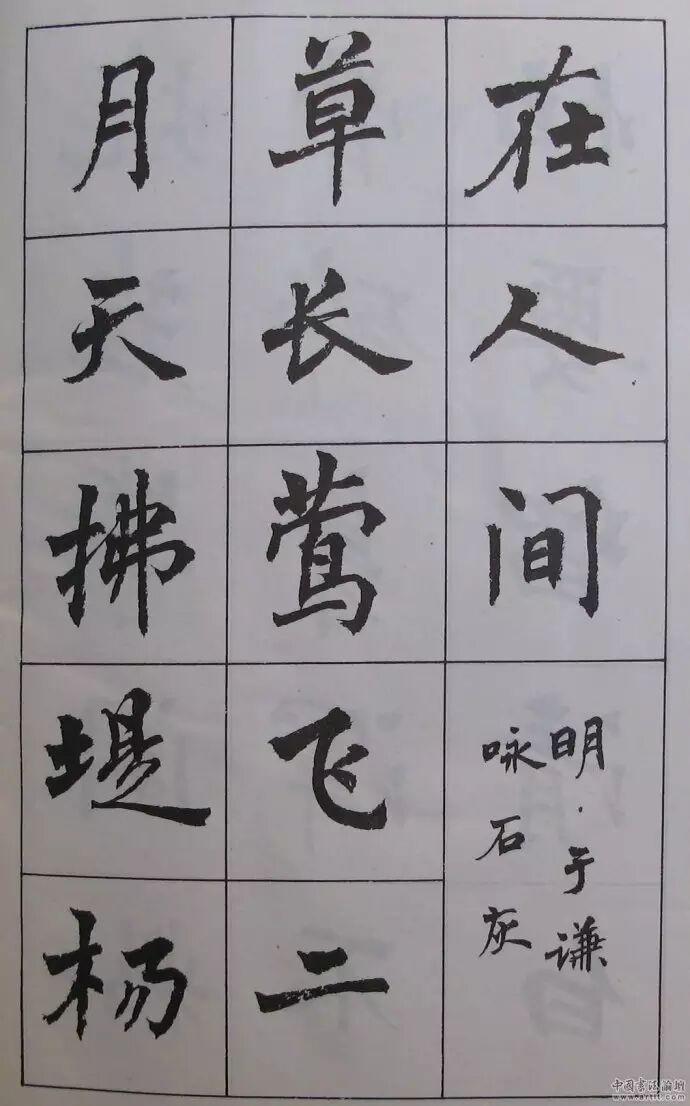 在人间
明·于谦
咏石灰
草长莺飞二
月天拂堤杨
中国书法论坛